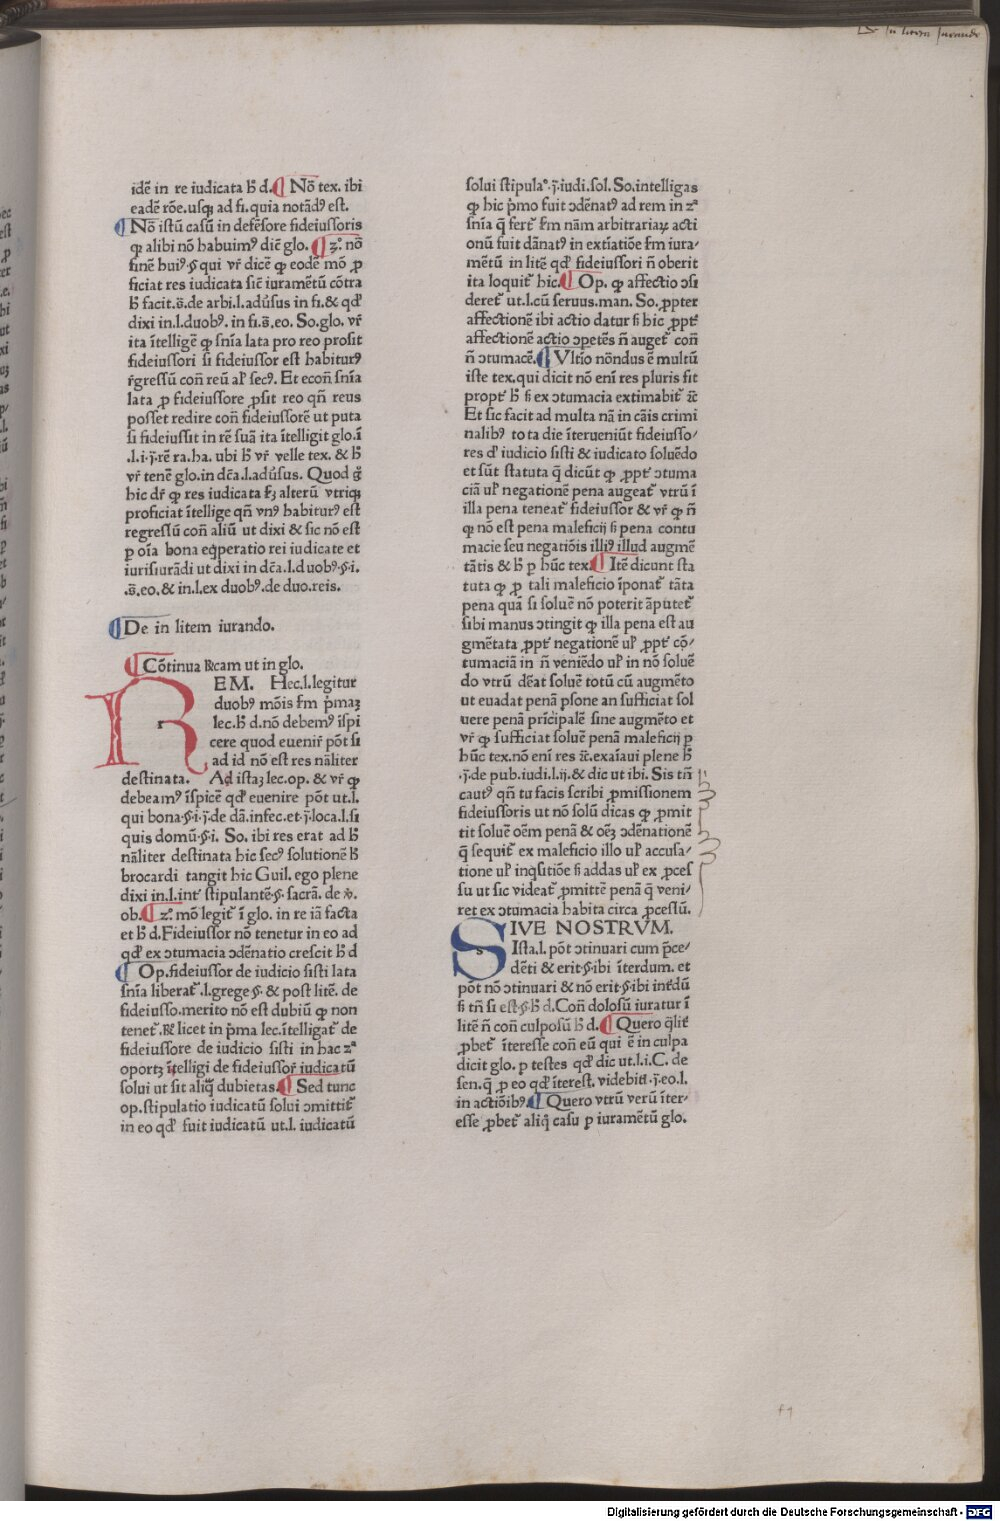 De in litem iurando
idē in re iudicata hͦ d. ¶ Nō tex. ibi
eadē rōe. usqꝫ ad fi. quia notādꝰ est.
¶ Nō istū casū in defēsore fideiussoris
ꝙ alibi nō habuimꝰ dic̄ glo. ¶ zͦ. nō
finē huiꝰ .§. qui vr̄ dicē ꝙ eodē mō ꝓ
ficiat res iudicata sic̄ iuramētū cōtra
hͦ facit .s̄. de arbi. l. adu̓sus in fi. & qđ
dixi in .l. duobꝰ. in fi. s̄. eo. So. glo. vr̄
ita ītelligē ꝙ sn̄ia lata pro reo prosit
fideiussori si fideiussor est habiturꝰ
r̄gressū con̄ reū al̓ secꝰ. Et econ̄ sn̄ia
lata ꝓ fideiussore ꝓsit reo qn̄ reus
posset redire con̄ fideiussorē ut puta
si fideiussit in rē suā ita ītelligit glo. ī
.l. i. j̄. rē ra. ha. ubi hͦ vr̄ velle tex. & hͦ
vr̄ tenē glo. in dc̄a .l. adu̓sus. Quod g̊
hic dr̄ ꝙ res iudicata īꝫ alterū vtriqꝫ
proficiat ītellige qn̄ vnꝰ habiturꝰ est
regressū con̄ aliū ut dixi & sic nō est
ꝑ oīa bona eq̄peratio rei iudicate et
iurisiurādi ut dixi in dc̄a .l. duobꝰ .§. i.
.s̄. eo. & in .l. ex duobꝰ. de duo. reis.
¶ De in litem iurando.
¶ Cōtinua Rͥcam ut in glo.
REM. Hec .l. legitur
duobꝰ mōis s̄m p̄maꝫ
lec. hͦ d. nō debemꝰ īspi
cere quod eueniř pōt si
ad id nō est res nāliter
destinata. Ad istaꝫ lec. op. & vr̄ ꝙ
debeamꝰ īspicē qđ euenire pōt ut .l.
qui bona .§. i. j̄. de dā. infec. et .j̄. loca. l. si
quis domū .§. i. So. ibi res erat ad hͦ
nāliter destinata hic secꝰ solutionē hͦ
brocardi tangit hic Guil. ego plene
dixi in .l. int̓ stipulantē .§. sacrā. de v̓.
ob. ¶ zͦ. mō legit̓ ī glo. in re iā facta
et hͦ d. Fideiussor nō tenetur in eo ad
qđ ex ↄtumacia ↄdēnatio crescit hͦ d
¶ Op. fideiussor de iudicio sisti lata
sn̄ia liberat̓ .l. grege .§. & post litē. de
fideiusso. merito nō est dubiū ꝙ non
tenet̓. R. licet in p̄ma lec. ītelligat̓ de
fideiussore de iudicio sisti in hac zͣ
oportꝫ ītelligi de fideiussoř iudicatū
solui ut sit aliq̄ dubietas. ¶ Sed tunc
op. stipulatio iudicatū solui ↄmittit̓
in eo qđ fuit iudicatū ut .l. iudicatū
solui stipulaͦ. j̄. iudi. sol. So. intelligas
ꝙ hic p̄mo fuit ↄdēnatꝰ ad rem in zͣ
sn̄ia q̄ fert̓ s̄m nām arbitrariaꝝ acti
onū fuit dānatꝰ in extiatiōe s̄m iura-
mētū in litē qđ fideiussori n̄ oberit
ita loquit̓ hic. ¶ Op. ꝙ affectio ↄsi
deret̓ ut .l. cū seruus. man. So. ꝓpter
affectionē ibi actio datur s̄ hic ꝓpt̓
affectionē actio ↄpetēs n̄ auget̓ con̄
n̄ ↄtumacē. ¶ Vltīo nōndus ē multū
iste tex. qui dicit nō eni res pluris fit
propt̓ hͦ s̄ ex ↄtumacia extimabit̓ ꝛc̄
Et sic facit ad multa nā in cāis crimi
nalibꝰ tota die īterueniūt fideiusso-
res d̓ iudicio sisti & iudicato soluēdo
et sūt statuta q̄ dicūt ꝙ ꝓpt̓ ↄtuma
ciā ul̓ negationē pena augeat̓ vtrū ī
illa pena teneat̓ fideiussor & vr̄ ꝙ n̄
ꝙ nō est pena maleficij s̄ pena contu
macie seu negatiōis illiꝰ illud augmē
tātis & hͦ ꝑ hūc tex. ¶ Itē dicunt sta
tuta ꝙ ꝓ tali maleficio īponat̓ tāta
pena quā si soluē nō poterit āputet̓
sibi manus ↄtingit ꝙ illa pena est au
gmētata ꝓpt̓ negationē ul̓ ꝓpt̓ cō-
tumaciā in n̄ veniēdo ul̓ in nō soluē
do vtrū dēat soluē totū cū augmēto
ut euadat penā ꝑsone an sufficiat sol
uere penā prīcipalē sine augmēto et
vr̄ ꝙ sufficiat soluē penā maleficij ꝑ
hūc tex. nō eni res ꝛc̄. exaīaui plene hͦ
.j̄. de pub. iudi. l. ij. & dic ut ibi. Sis tn̄
cautꝰ qn̄ tu facis scribi ꝓmissionem
fideiussoris ut nō solū dicas ꝙ ꝓmit
tit soluē oēm penā & oēꝫ ↄdēnationē
q̄ sequit̓ ex maleficio illo ul̓ accusa-
tione ul̓ inq̄sitiōe s̄ addas ul̓ ex ꝓces
su ut sic videat̓ ꝓmittē penā q̄ veni-
ret ex ↄtumacia habita circa ꝓcessū.
SIVE NOSTRVM.
Ista .l. pōt ↄtinuari cum p̄ce-
dēti & erit .§. ibi īterdum. et
pōt nō ↄtinuari & nō erit .§. ibi int̓dū
s̄ tn̄ si est .§. hͦ d. Con̄ dolosū iuratur ī
litē n̄ con̄ culposū hͦ d. ¶ Quero q̄lit̓
ꝓbet̓ īteresse con̄ eū qui ē in culpa
dicit glo. ꝑ testes qđ dic ut .l. i. C. de
sen. q̄ ꝓ eo qđ īterest. videbit̓ .j̄. eo. l.
in actiōibꝰ. ¶ Quero vtrū verū īter-
esse ꝓbet̓ aliq̄ casu ꝑ iuramētū glo.
f 1
Digitalisierung gefördert durch die Deutsche Forschungsgemeinschaft - DFG